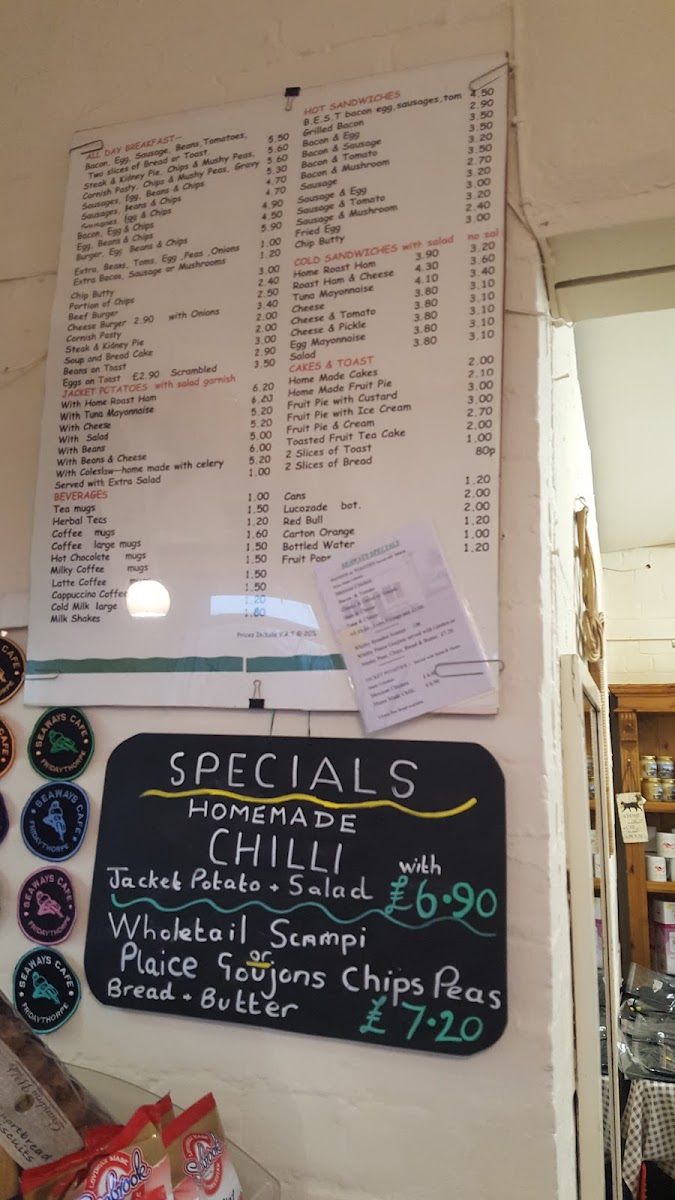 ALL DAY BREAKFAST—
Bacon, Egg, Sausage, Beans, Tomatoes,
Two slices of Bread or Toast 5.50
Steak & Kidney Pie, Chips & Mushy Peas, 5.60
Cornish Pasty, Chips & Mushy Peas, Gravy 5.60
Sausages, Egg, Beans & Chips 5.30
Sausages, Beans & Chips 4.70
Sausages, Egg & Chips 4.70
Bacon, Egg & Chips 4.90
Egg, Beans & Chips 4.50
Burger, Egg, Beans & Chips 5.90
Extra, Beans, Toms, Egg, Peas, Onions 1.00
Extra Bacon, Sausage or Mushrooms 1.20
Chip Butty 3.00
Portion of Chips 2.40
Beef Burger 2.50
Cheese Burger 2.90 with Onions 3.40
Cornish Pasty 2.00
Steak & Kidney Pie 2.00
Soup and Bread Cake 3.00
Beans on Toast 2.90
Eggs on Toast £2.90 Scrambled 3.50
JACKET POTATOES with salad garnish
With Home Roast Ham 6.20
With Tuna Mayonnaise 6.20
With Cheese 5.20
With Salad 5.20
With Beans 5.00
With Beans & Cheese 6.00
With Coleslaw—home made with celery 5.20
Served with Extra Salad 1.00
BEVERAGES
Tea mugs 1.00
Herbal Teas 1.50
Coffee mugs 1.20
Coffee large mugs 1.60
Hot Chocolate mugs 1.50
Milky Coffee mugs 1.50
Latte Coffee 1.50
Cappuccino Coffee 1.50
Cold Milk large 1.20
Milk Shakes 1.80
HOT SANDWICHES
B.E.S.T bacon egg, sausages, tom 4.50
Grilled Bacon 2.90
Bacon & Egg 3.50
Bacon & Sausage 3.50
Bacon & Tomato 3.20
Bacon & Mushroom 3.50
Sausage 2.70
Sausage & Egg 3.20
Sausage & Tomato 3.00
Sausage & Mushroom 3.20
Fried Egg 2.40
Chip Butty 3.00
COLD SANDWICHES with salad no sal
Home Roast Ham 3.90 3.20
Roast Ham & Cheese 4.30 3.60
Tuna Mayonnaise 4.10 3.40
Cheese 3.80 3.10
Cheese & Tomato 3.80 3.10
Cheese & Pickle 3.80 3.10
Egg Mayonnaise 3.80 3.10
Salad 3.80 3.10
CAKES & TOAST
Home Made Cakes 2.00
Home Made Fruit Pie 2.10
Fruit Pie with Custard 3.00
Fruit Pie with Ice Cream 3.00
Fruit Pie & Cream 2.70
Toasted Fruit Tea Cake 2.00
2 Slices of Toast 1.00
2 Slices of Bread 80p
Cans 1.20
Lucozade bot. 2.00
Red Bull 2.00
Carton Orange 1.20
Bottled Water 1.00
Fruit Pops 1.20
Prices Include V.A.T @ 20%
SEAWAYS SPECIALS
SPECIALS
HOMEMADE
CHILLI with
Jacket Potato + Salad £6.90
Wholetail Scampi
or
Plaice Goujons Chips Peas
Bread + Butter £7.20
SEAWAYS CAFE
FRIDAYTHORPE
SEAWAYS CAFE
FRIDAYTHORPE
SEAWAYS CAFE
FRIDAYTHORPE
SEAWAYS CAFE
FRIDAYTHORPE
Seabrook